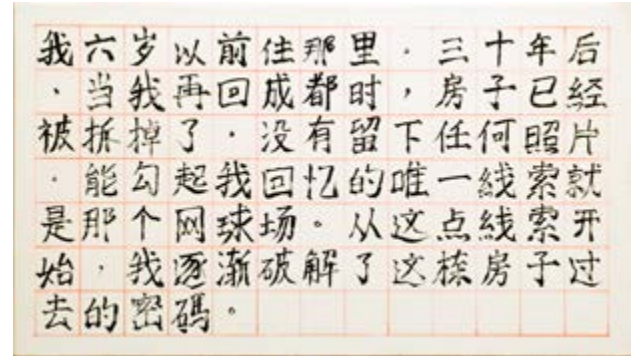 我六岁以前住那里．三十年后
．当我再回成都时，房子已经
被拆掉了．没有留下任何照片
．能勾起我回忆的唯一线索就
是那个网球场。从这点线索开
始，我逐渐破解了这栋房子过
去的密碼。